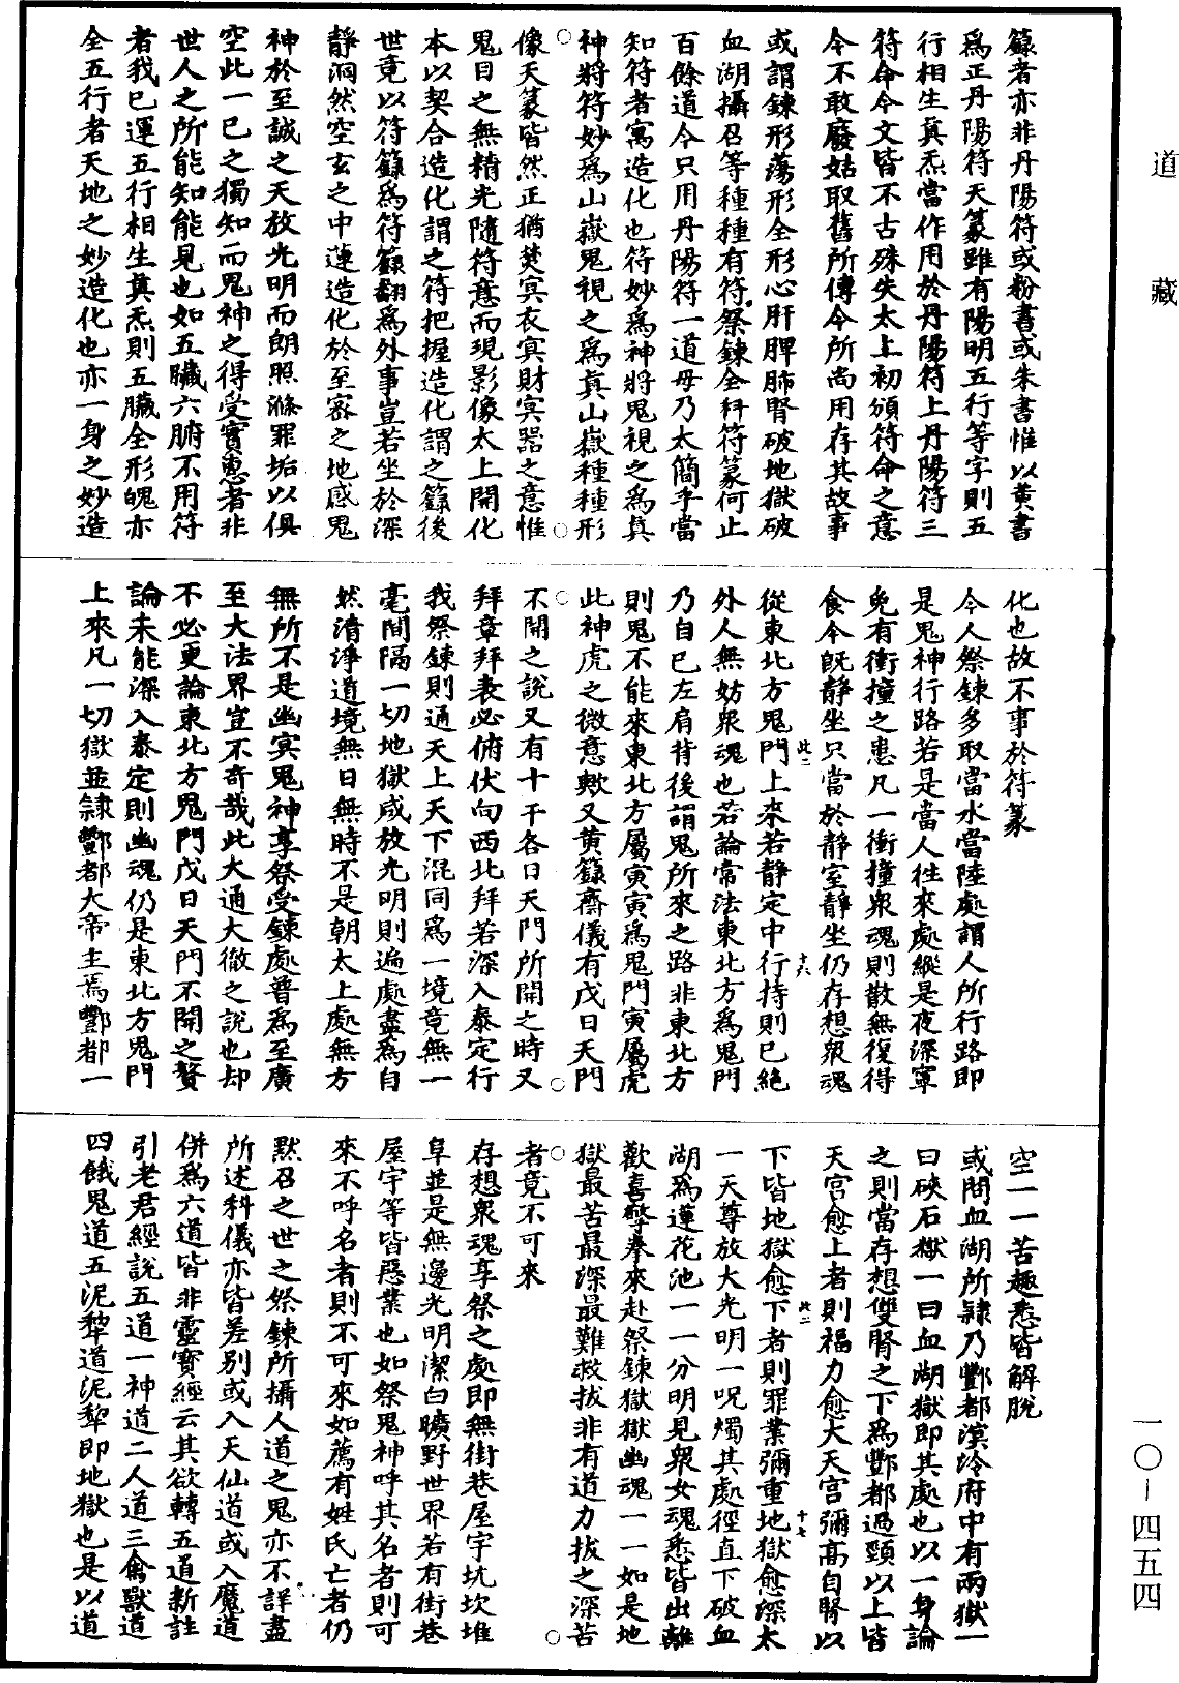 籙者亦非丹陽符或粉書或朱書惟以黄書
爲正丹陽符天篆雖有陽明五行等字則五
行相生真炁當作用於丹陽符上丹陽符三
符命今文皆不古殊失太上初頒符命之意
今不敢廢姑取舊所傳今所尚用存其故事
或謂鍊形蕩形全形心肝脾肺腎破地獄破
血湖攝召等種種有符祭鍊全科符篆何止
百餘道今只用丹陽符一道毋乃太簡乎當
知符者寓造化也符妙爲神將鬼視之爲真
神將符妙爲山嶽鬼視之爲真山嶽種種形
像天篆皆然正猶焚冥衣冥財冥器之意惟
鬼目之無精光隨符意而現影像太上開化
本以契合造化謂之符把握造化謂之籙後
世竟以符籙爲符籙翻爲外事豈若坐於深
靜洞然空玄之中運造化於至密之地感鬼
神於至誠之天放光明而朗照滌罪垢以俱
空此一己之獨知而鬼神之得受實惠者非
世人之所能知能見也如五臟六腑不用符
者我已運五行相生真炁則五臟全形魄亦
全五行者天地之妙造化也亦一身之妙造
化也故不事於符篆
今人祭鍊多取當水當陸處謂人所行路即
是鬼神行路若是當人徃來處縱是夜深寧
免有衝撞之患凡一衝撞衆魂則散無復得
食今旣靜坐只當於靜室靜坐仍存想衆魂
從東北方鬼門上來若靜定中行持則已絶
外人無妨衆魂也若論常法東北方爲鬼門
乃自己左肩背後謂鬼所來之路非東北方
則鬼不能來東北方屬寅寅爲鬼門寅屬虎
此神虎之微意歟又黄籙齋儀有戊日天門
不開之說又有十干各日天門所開之時又
拜章拜表必俯伏向西北拜若深入泰定行
我祭鍊則通天上天下混同爲一境竟無一
毫間隔一切地獄咸放光明則遍處盡爲自
然清淨道境無日無時不是朝太上處無方
無所不是幽冥鬼神享祭受鍊處普爲至廣
至大法界豈不奇哉此大通大徹之說也却
不必更論東北方鬼門戊日天門不開之贅
論未能深入泰定則幽魂仍是東北方鬼門
上來凡一切獄並隸酆都大帝主焉酆都一
空一一苦趣悉皆解脫
或問血湖所隸乃酆都溟泠府中有兩獄一
曰硤石獄一曰血湖獄即其處也以一身論
之則當存想雙腎之下爲酆都過頸以上皆
天宫愈上者則福力愈大天宫彌高自腎以
下皆地獄愈下者則罪業彌重地獄愈深太
一天尊放大光明一呪燭其處徑直下破血
湖爲蓮花池一一分明見衆女魂悉皆出離
歡喜擎拳來赴祭鍊獄獄幽魂一一如是地
獄最苦最深最難救拔非有道力拔之深苦
者竟不可來
存想衆魂享祭之處即無街巷屋宇坑坎堆
阜並是無邊光明潔白曠野世界若有街巷
屋宇等皆惡業也如祭鬼神呼其名者則可
來不呼名者則不可來如薦有姓氏亡者仍
黙召之世之祭鍊所攝人道之鬼亦不詳盡
所述科儀亦皆差別或入天仙道或入魔道
併爲六道皆非靈寶經云其欲轉五道新註
引老君經說五道一神道二人道三禽獸道
四餓鬼道五泥犂道泥犂即地獄也是以道
此一
十六
此二
十七
道藏
一〇—四五四